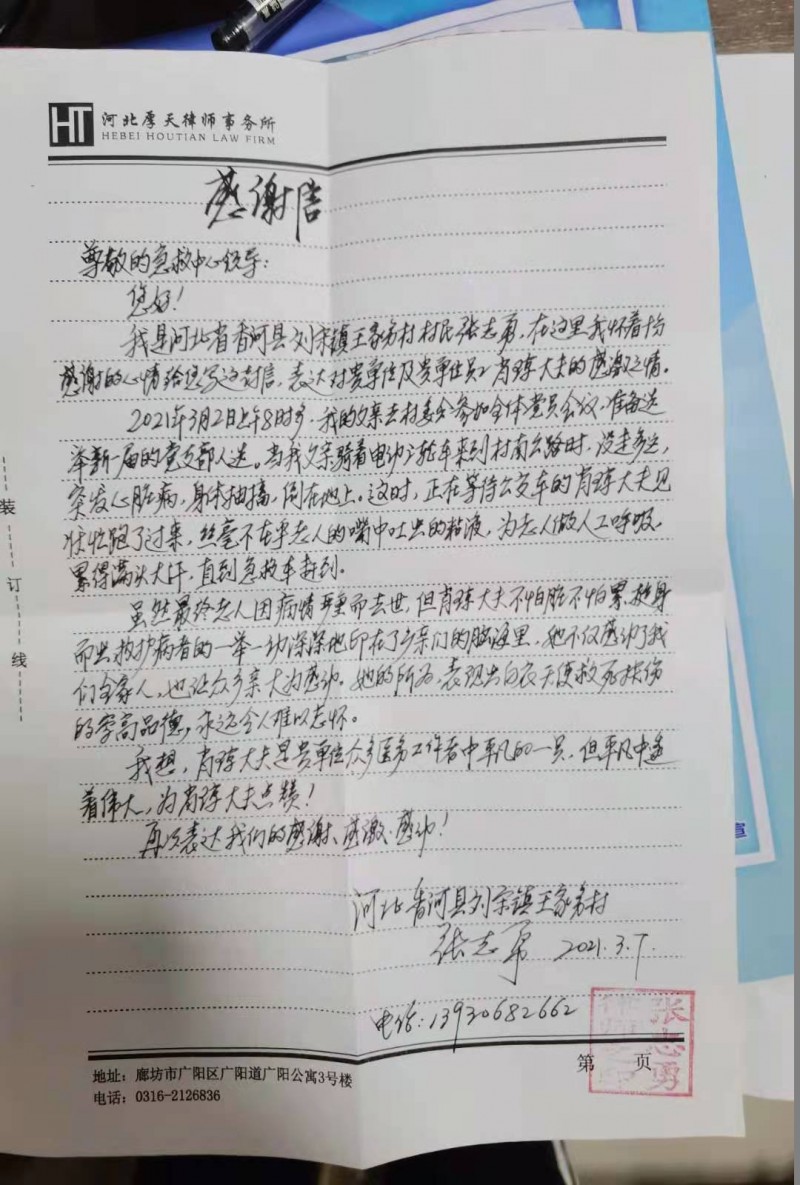 HT 河北厚天律师事务所
HEBEI HOUTIAN LAW FIRM
感谢信
尊敬的急救中心领导:
您好!
我是河北省香河县刘宋镇王家务村村民张志勇,在这里我怀着十分
感谢的心情给您写这封信,表达对贵单位及贵单位员工肖璨大夫的感激之情。
2021年3月2日上午8时多,我的父亲去村委会参加全体党员会议,准备选
举新一届的党支部人选。当我父亲骑着电动三轮车来到村南公路时,没走多远,
突发心脏病,身体抽搐,倒在地上。这时,正在等待公交车的肖璨大夫见
状忙跑了过来,丝毫不在乎老人的嘴中吐出的粘液,为老人做人工呼吸,
累得满头大汗,直到急救车赶到。
虽然最终老人因病情严重而去世,但肖璨大夫不怕脏不怕累,挺身
而出救护病者的一举一动深深地印在了乡亲们的脑海里,她不仅感动了我
们全家人,也让众乡亲大为感动。她的所为,表现出白衣天使救死扶伤
的崇高品德,永远令人难以忘怀。
我想,肖璨大夫是贵单位众多医务工作者中平凡的一员,但平凡中透
着伟大,为肖璨大夫点赞!
再次表达我们的感谢、感激、感动!
河北香河县刘宋镇王家务村
张志勇 2021.3.7.
电话:13930682662
张志勇
第 页
地址:廊坊市广阳区广阳道广阳公寓3号楼
电话:0316-2126836
装
订
线